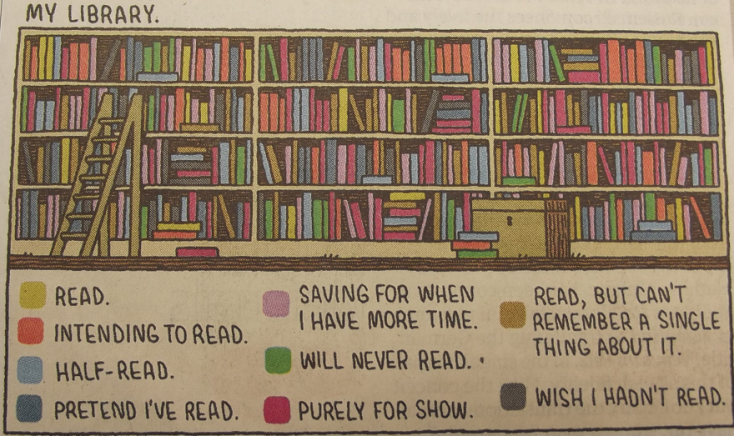 MY LIBRARY.
READ.
INTENDING TO READ.
HALF-READ.
PRETEND I'VE READ.
SAVING FOR WHEN
I HAVE MORE TIME.
WILL NEVER READ.
PURELY FOR SHOW.
READ, BUT CAN'T
REMEMBER A SINGLE
THING ABOUT IT.
WISH I HADN'T READ.